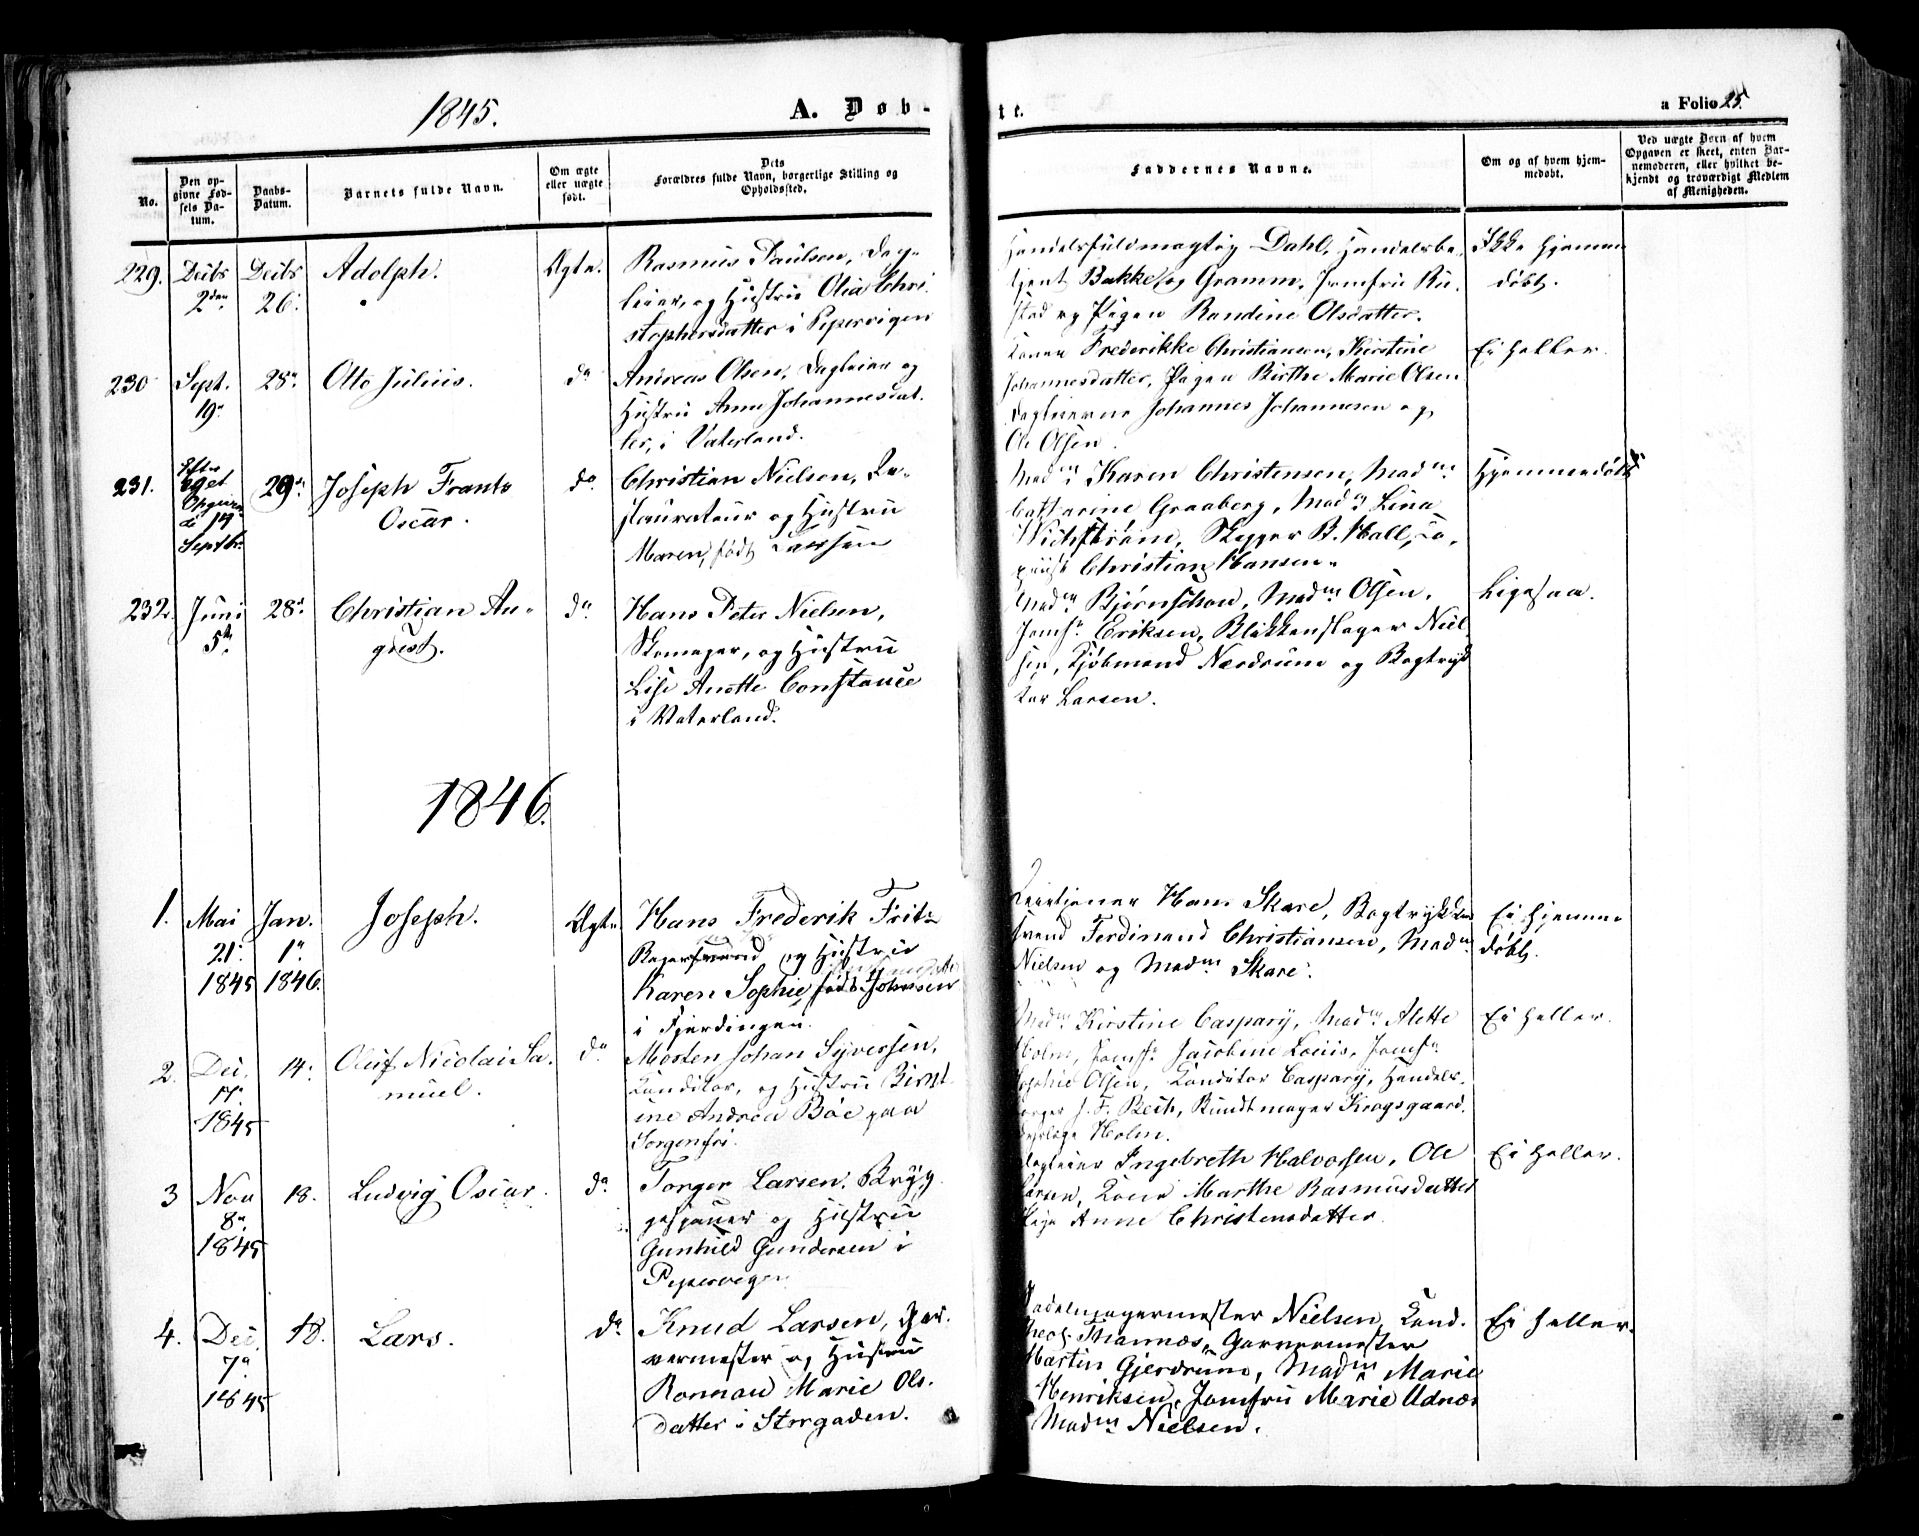 1845.
A. Døb-
te.
a Folio 25.
No.
Den op-
givne Fød-
sels Da-
tum.
Daabs-
Datum.
Barnets fulde Navn.
Om ægte
eller uægte
født.
Dets
Forældres fulde Navn, borgerlige Stilling og
Opholdssted.
Faddernes Navne.
Om og af hvem hjem-
medøbt.
Ved uægte Børn af hvem
Opgaven er skeet, enten Bar-
nemoderen, eller hvilket be-
kjendt og troværdigt Medlem
af Menigheden.
229.
Decbr
2den
Decbr
26.
Adolph.
Ægte.
Rasmus Paulsen, Dag-
leier, og Hustru Olia Chri-
stophersdatter i Pepervigen
Handelsfuldmægtig Dahl, Handelsbe-
tjent Bakke og Gramm, Jomfru Ru-
stad og Pigen Randine Olsdatter.
Ikke hjemme
døbt.
230
Sept.
19.
28.
Otto Julius.
do
Andreas Olsen, Dagleier og
Hustru Anne Johannesdat-
ter, i Vaterland.
Konen Frederikke Christiansen, Kirstine
Johannesdatter, Pigen Birthe Marie Olsen
Dagleierne Johannes Johannesen og
Ole Olsen.
Ei heller.
231.
Efter
eget
Opgiven-
de 14
Septbr.
29.
Joseph Frants
Oscar.
do
Christian Nielsen, Re-
staurateur og Hustru
Maren, født Larssen
Madm Karen Christensen, Madm
Cathrine Graaberg, Madm Lina
Wichstrøm, Skipper B. Hall, Co-
piist Christian Hansen.
Hjemmedøbt
232.
Juni
5.
28.
Christian Au-
gust.
do
Hans Peter Nielsen,
Skomager, og Hustru
Lise Anette Constance
i Vaterland.
Madm Bjørnschou, Madm Olsen,
Jomfr Eriksen, Blikkenslager Niel-
sen, Kjøbmand Nordrum og Bogtryk
ker Larsen.
Ligesaa.
1846.
1.
Mai
21.
1845
Jan.
1.
1846.
Joseph.
Ægte
Hans Frederik Fritz
Bagersvend og Hustru
Karen Sophie født Johnsen
i Fjerdingen.
Hans Skare, Bogtrykker
svend Ferdinand Christiansen, Madm
Nielsen og Madm Skare.
Ei hjemme
døbt.
2.
Dec.
17.
1845
14.
Oluf Nicolai Sa-
muel.
do
Morten Johan Syversen,
Conditor, og Hustru Bernt-
ine Andrea Bøe paa
Sorgenfri.
Madm Kirstine Caspary, Madm Alette
Holm, Jomfr Jacobine Louis, Jomfr
Sophie Olsen, Konditor Caspary, Handels-
borger J. F. Bech, Bundtmager Krogsgaard,
Holm.
Ei heller.
3
Nov
8.
1845
18.
Ludvig Oscar.
do
Torger Larsen, Bryg-
gesjauer og Hustru
Gunhild Gundersen i
Pepervigen
Dagleier Ingebreth Halvorsen, Ole
Larsen, Kone Marthe Rasmusdatter
Pige Anne Christensdatter.
Ei heller.
4.
Dec.
7.
1845
18.
Lars.
do
Knud Larsen, Gar-
vermester og Hustru
Ronnau Marie Ols-
datter i Storgaden.
Sadelmagermester Nielsen, Cand.
theol. Thannæs, Garvermester
Martin Gjerdrum, Madm Marie
Henriksen, Jomfru Marie Udnæs
Madm Nielsen.
Ei heller.